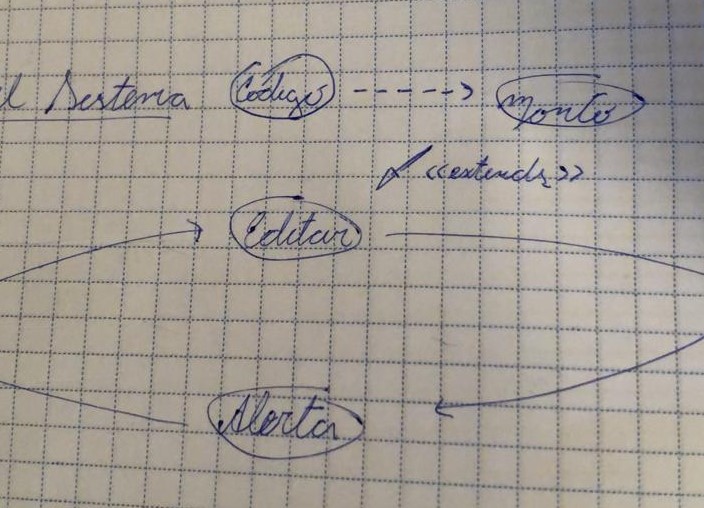 l Sistema Código Monto
<<extends>>
Editar
Alerta